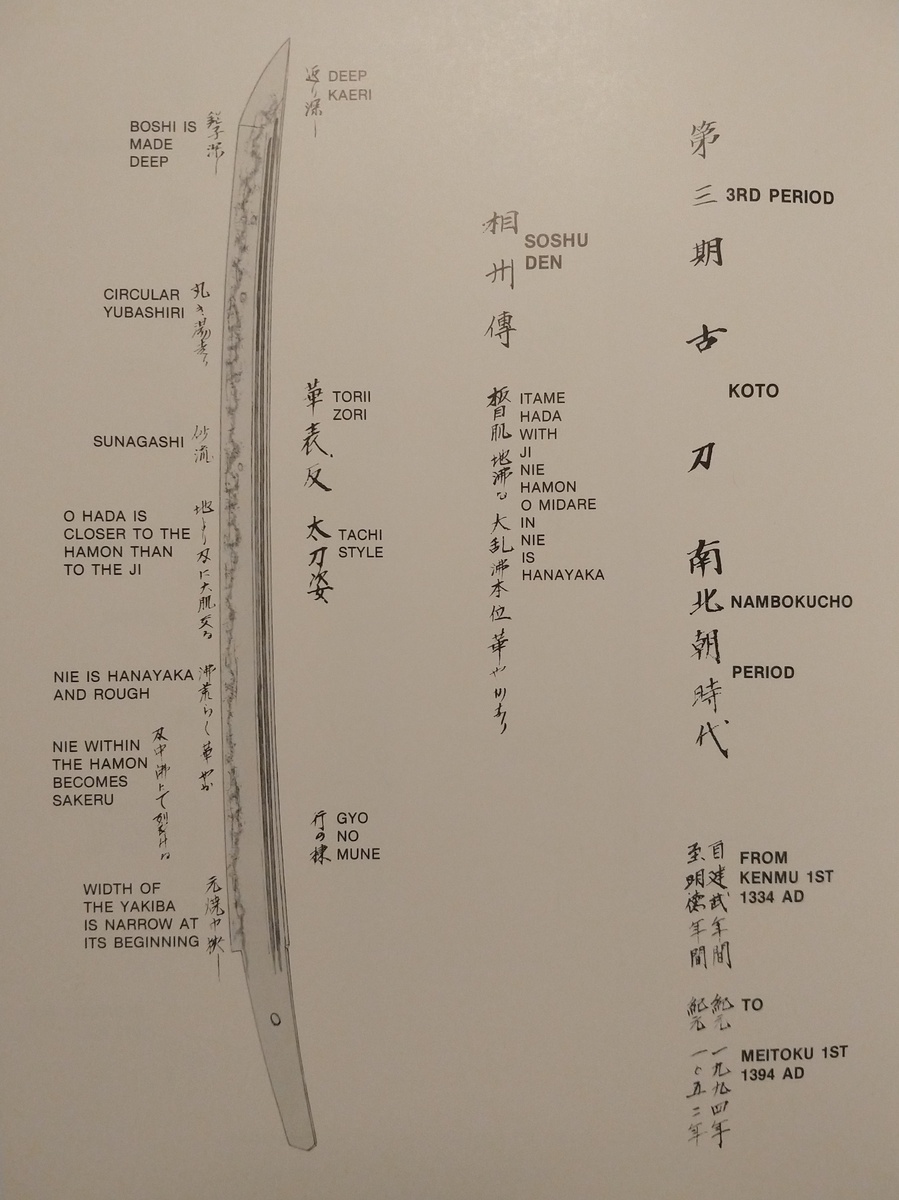 第三期古刀南北朝時代
3RD PERIOD
KOTO
NAMBOKUCHO
PERIOD
自建武年間
至明徳年間
FROM
KENMU 1ST
1334 AD
紀元一九九四年
紀元二〇五二年
TO
MEITOKU 1ST
1394 AD
相州傳
SOSHU
DEN
板目肌地沸
大乱沸本位華やかなり
ITAME
HADA
WITH
JI
NIE
HAMON
O MIDARE
IN
NIE
IS
HANAYAKA
返り深し
DEEP
KAERI
華表反
TORII
ZORI
太刀姿
TACHI
STYLE
行の棟
GYO
NO
MUNE
鋩子深し
BOSHI IS
MADE
DEEP
丸き湯走り
CIRCULAR
YUBASHIRI
砂流
SUNAGASHI
地より刃に大肌交る
O HADA IS
CLOSER TO THE
HAMON THAN
TO THE JI
沸荒らく華やか
NIE IS HANAYAKA
AND ROUGH
刃中沸
NIE WITHIN
THE HAMON
BECOMES
SAKERU
元焼巾狭し
WIDTH OF
THE YAKIBA
IS NARROW AT
ITS BEGINNING